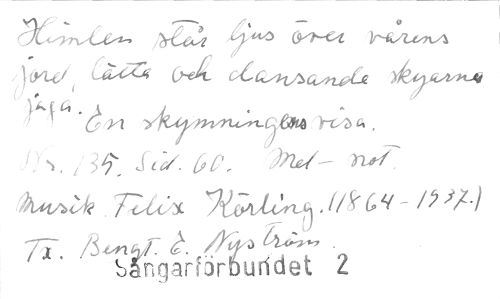 Himlen står ljus över vårens
jord, lätta och dansande skyarna
jaga. En skymningens visa.
Nr. 135. Sid. 60. Mel-not.
Musik Felix Körling. (1864-1937.)
Tx. Bengt. E. Nyström.
Sångarförbundet 2